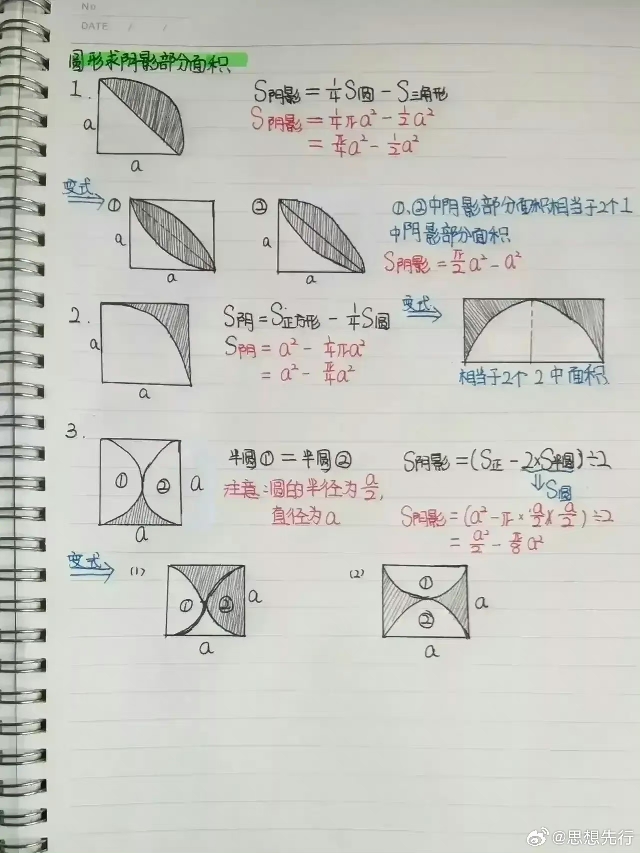 No
DATE / /
圆形求阴影部分面积
1.
a
a
S阴影=¼S圆-S三角形
S阴影=¼πa²-½a²
=π/4a²-½a²
变式
①
a
a
②
a
a
①、②中阴影部分面积相当于2个1
中阴影部分面积
S阴影=π/2a²-a²
2.
a
a
S阴=S正方形-¼S圆
S阴=a²-¼πa²
=a²-π/4a²
变式
相当于2个2中面积
3.
① ② a
a
半圆①=半圆②
注意:圆的半径为a/2,
直径为a
S阴影=(S正-2×S半圆)÷2
S圆
S阴影=(a²-π×a/2×a/2)÷2
=a²/2-π/8a²
变式
(1)
① ② a
a
(2)
①
② a
a
@思想先行